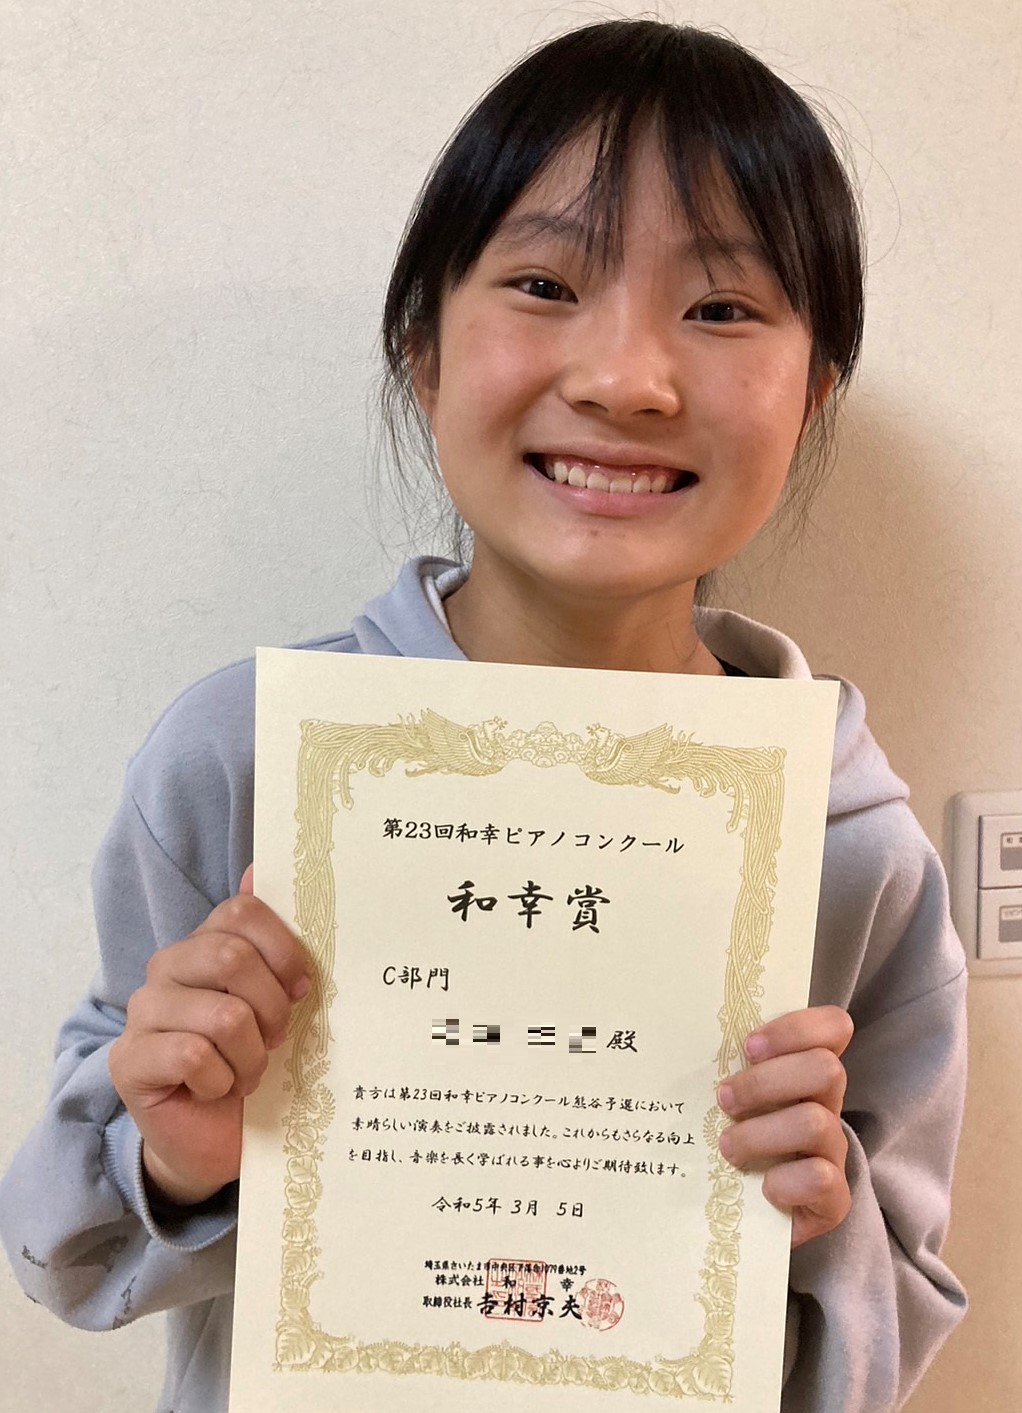 第23回和幸ピアノコンクール
和幸賞
C部門
殿
貴方は第23回和幸ピアノコンクール熊谷予選において
素晴らしい演奏をご披露されました。これからもさらなる向上
を目指し、音楽を長く学ばれる事を心よりご期待致します。
令和5年 3月 5日
埼玉県さいたま市中央区下落合1079番地2号
株式会社 和 幸
取締役社長 吉村京夫